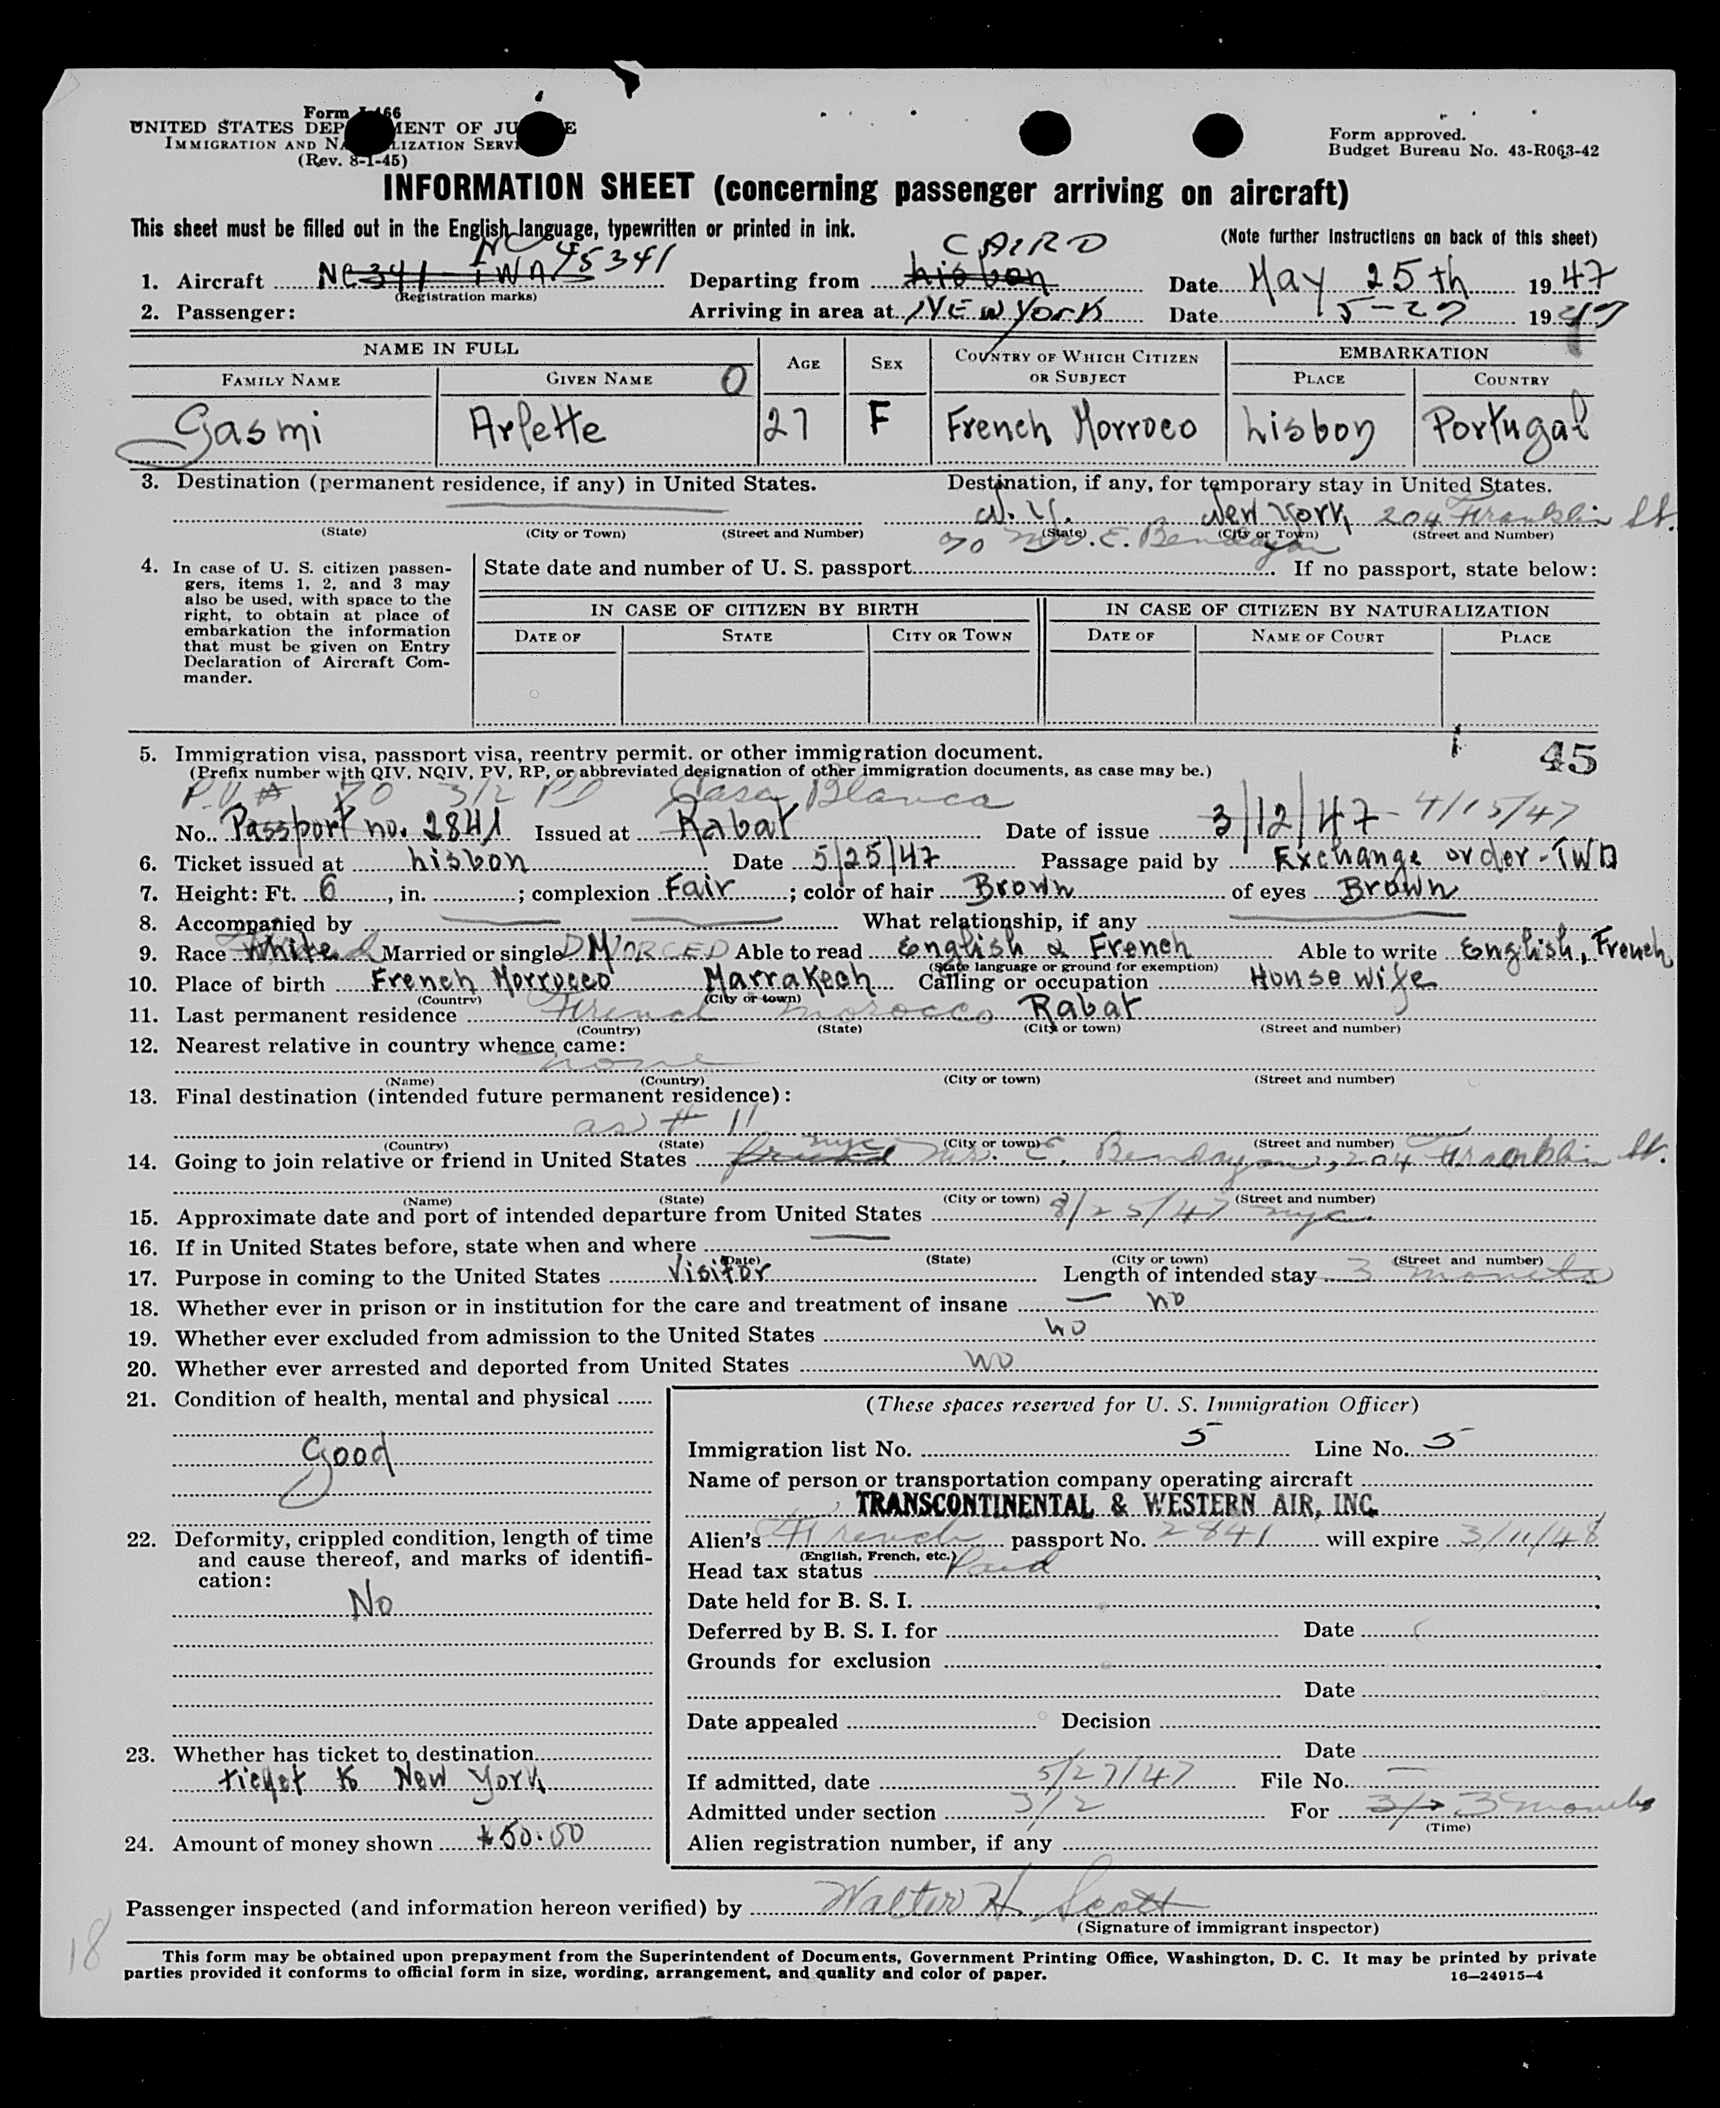 Form I-466
UNITED STATES DEPARTMENT OF JUSTICE
IMMIGRATION AND NATURALIZATION SERVICE
(Rev. 8-1-45)
Form approved.
Budget Bureau No. 43-R063-42
INFORMATION SHEET (concerning passenger arriving on aircraft)
This sheet must be filled out in the English language, typewritten or printed in ink.
(Note further instructions on back of this sheet)
NC 45341 CAIRO
1. Aircraft NC 341 - TWA Departing from Lisbon Date May 25th 1947
(Registration marks)
2. Passenger: Arriving in area at NEW YORK Date 5-27 1947
NAME IN FULL AGE SEX COUNTRY OF WHICH CITIZEN OR SUBJECT EMBARKATION
FAMILY NAME GIVEN NAME O PLACE COUNTRY
Gasmi Arlette 27 F French Morroco Lisbon Portugal
3. Destination (permanent residence, if any) in United States. Destination, if any, for temporary stay in United States.
N.Y. New York 204 Franklin St.
(State) (City or Town) (Street and Number) (State) (City or Town) (Street and Number)
c/o Mr. E. Bendayan
4. In case of U. S. citizen passengers, items 1, 2, and 3 may also be used, with space to the right, to obtain at place of embarkation the information that must be given on Entry Declaration of Aircraft Commander.
State date and number of U. S. passport If no passport, state below:
IN CASE OF CITIZEN BY BIRTH IN CASE OF CITIZEN BY NATURALIZATION
DATE OF STATE CITY OR TOWN DATE OF NAME OF COURT PLACE
45
5. Immigration visa, passport visa, reentry permit, or other immigration document.
(Prefix number with QIV, NQIV, PV, RP, or abbreviated designation of other immigration documents, as case may be.)
P.V. # 70 3/2 Casa Blanca
No. Passport no. 2841 Issued at Rabat Date of issue 3/12/47 - 4/15/47
6. Ticket issued at Lisbon Date 5/25/47 Passage paid by Exchange order - TWA
7. Height: Ft. 6, in. ; complexion Fair; color of hair Brown of eyes Brown
8. Accompanied by What relationship, if any
9. Race White Married or single DIVORCED Able to read English & French Able to write English, French
(State language or ground for exemption)
10. Place of birth French Morrocco Marrakech Calling or occupation House wife
(Country) (City or town)
11. Last permanent residence French Morocco Rabat
(Country) (State) (City or town) (Street and number)
12. Nearest relative in country whence came:
none
(Name) (Country) (City or town) (Street and number)
13. Final destination (intended future permanent residence):
as # 11
(Country) (State) (City or town) (Street and number)
14. Going to join relative or friend in United States friend nyc Mr. E. Bendayan, 204 Franklin St.
(Name) (State) (City or town) (Street and number)
15. Approximate date and port of intended departure from United States 8/25/47 nyc.
16. If in United States before, state when and where
(Date) (State) (City or town) (Street and number)
17. Purpose in coming to the United States Visitor Length of intended stay 3 months
18. Whether ever in prison or in institution for the care and treatment of insane — no
19. Whether ever excluded from admission to the United States no
20. Whether ever arrested and deported from United States no
21. Condition of health, mental and physical
Good
22. Deformity, crippled condition, length of time and cause thereof, and marks of identification:
No
23. Whether has ticket to destination
ticket to New York
24. Amount of money shown $50.00
(These spaces reserved for U. S. Immigration Officer)
Immigration list No. 5 Line No. 5
Name of person or transportation company operating aircraft
TRANSCONTINENTAL & WESTERN AIR, INC.
Alien's French passport No. 2841 will expire 3/11/48
(English, French, etc.)
Head tax status Paid
Date held for B. S. I.
Deferred by B. S. I. for Date
Grounds for exclusion
Date
Date appealed Decision
Date
If admitted, date 5/27/47 File No. —
Admitted under section 3/2 For 3/2 3 months
(Time)
Alien registration number, if any
Passenger inspected (and information hereon verified) by Walter H. Scott
(Signature of immigrant inspector)
18
This form may be obtained upon prepayment from the Superintendent of Documents, Government Printing Office, Washington, D. C. It may be printed by private
parties provided it conforms to official form in size, wording, arrangement, and quality and color of paper.
16—24915-4